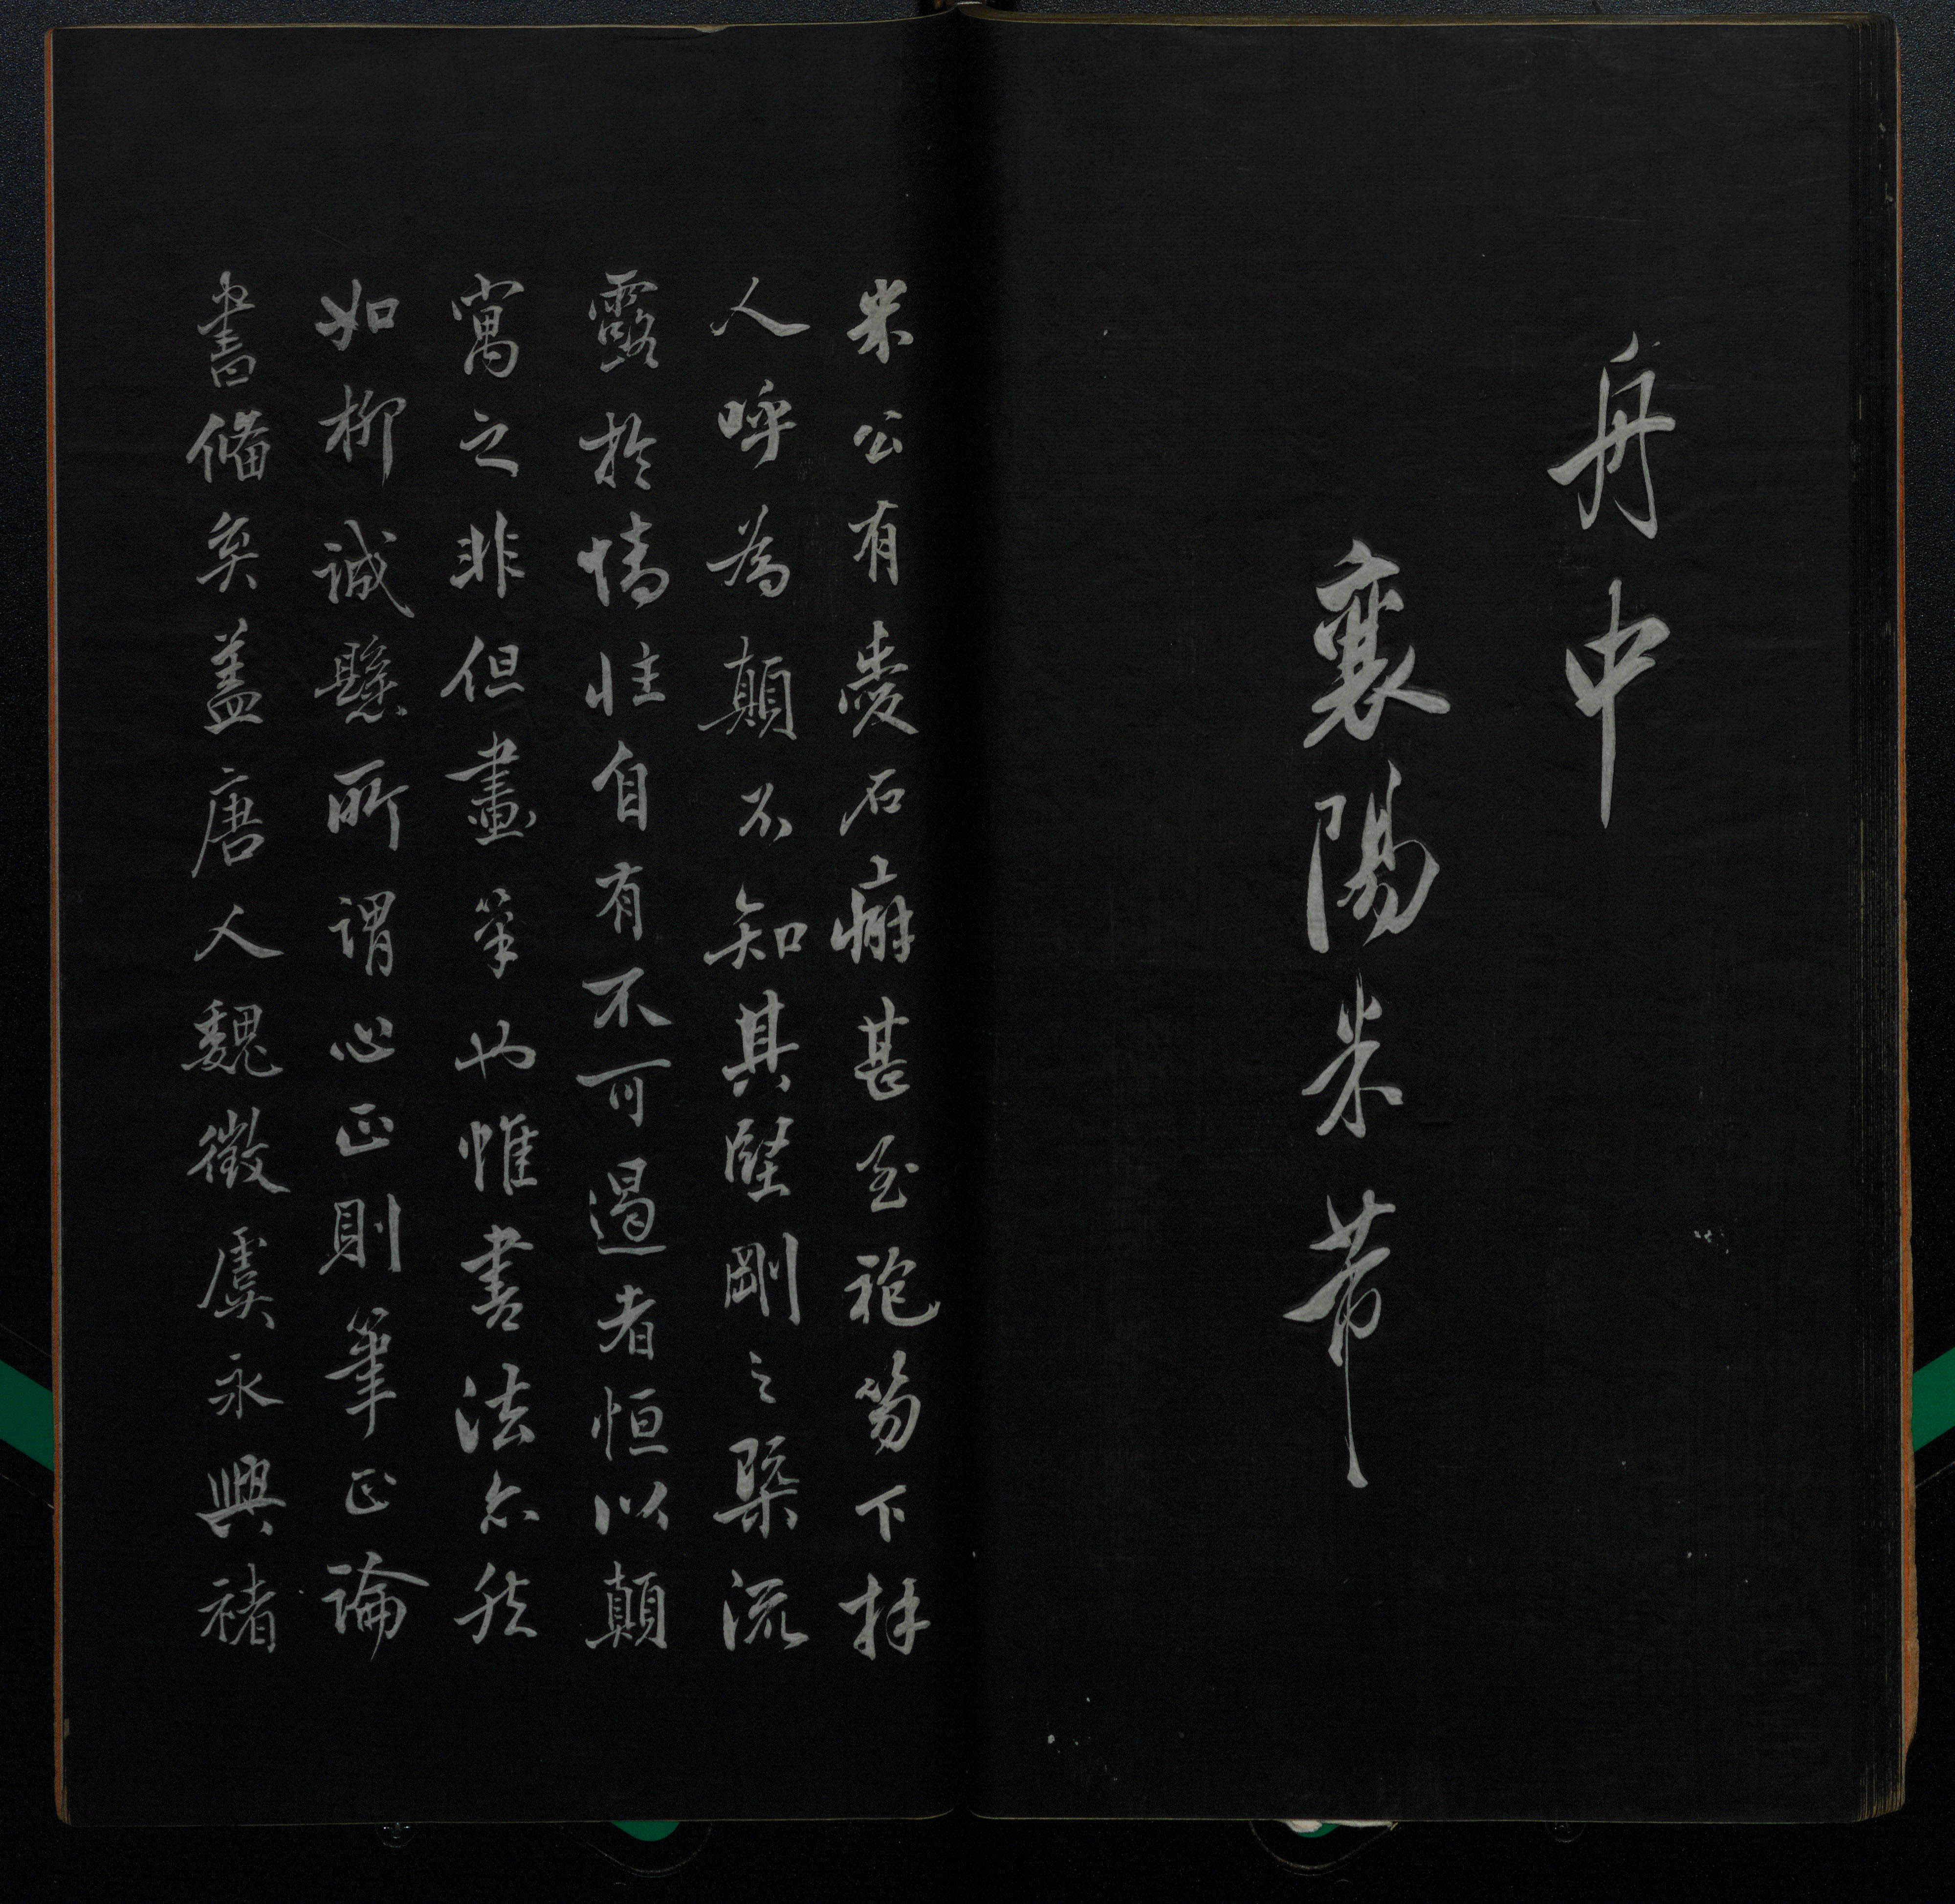 舟中
襄陽米芾
米公有愛石癖甚至袍笏下拜
人呼為顛不知其堅剛之槩流
露於情性自有不可遏者恒以顛
寓之非但畫筆也惟書法亦然
如柳誠懸所謂心正則筆正論
書備矣蓋唐人魏徵虞永興褚